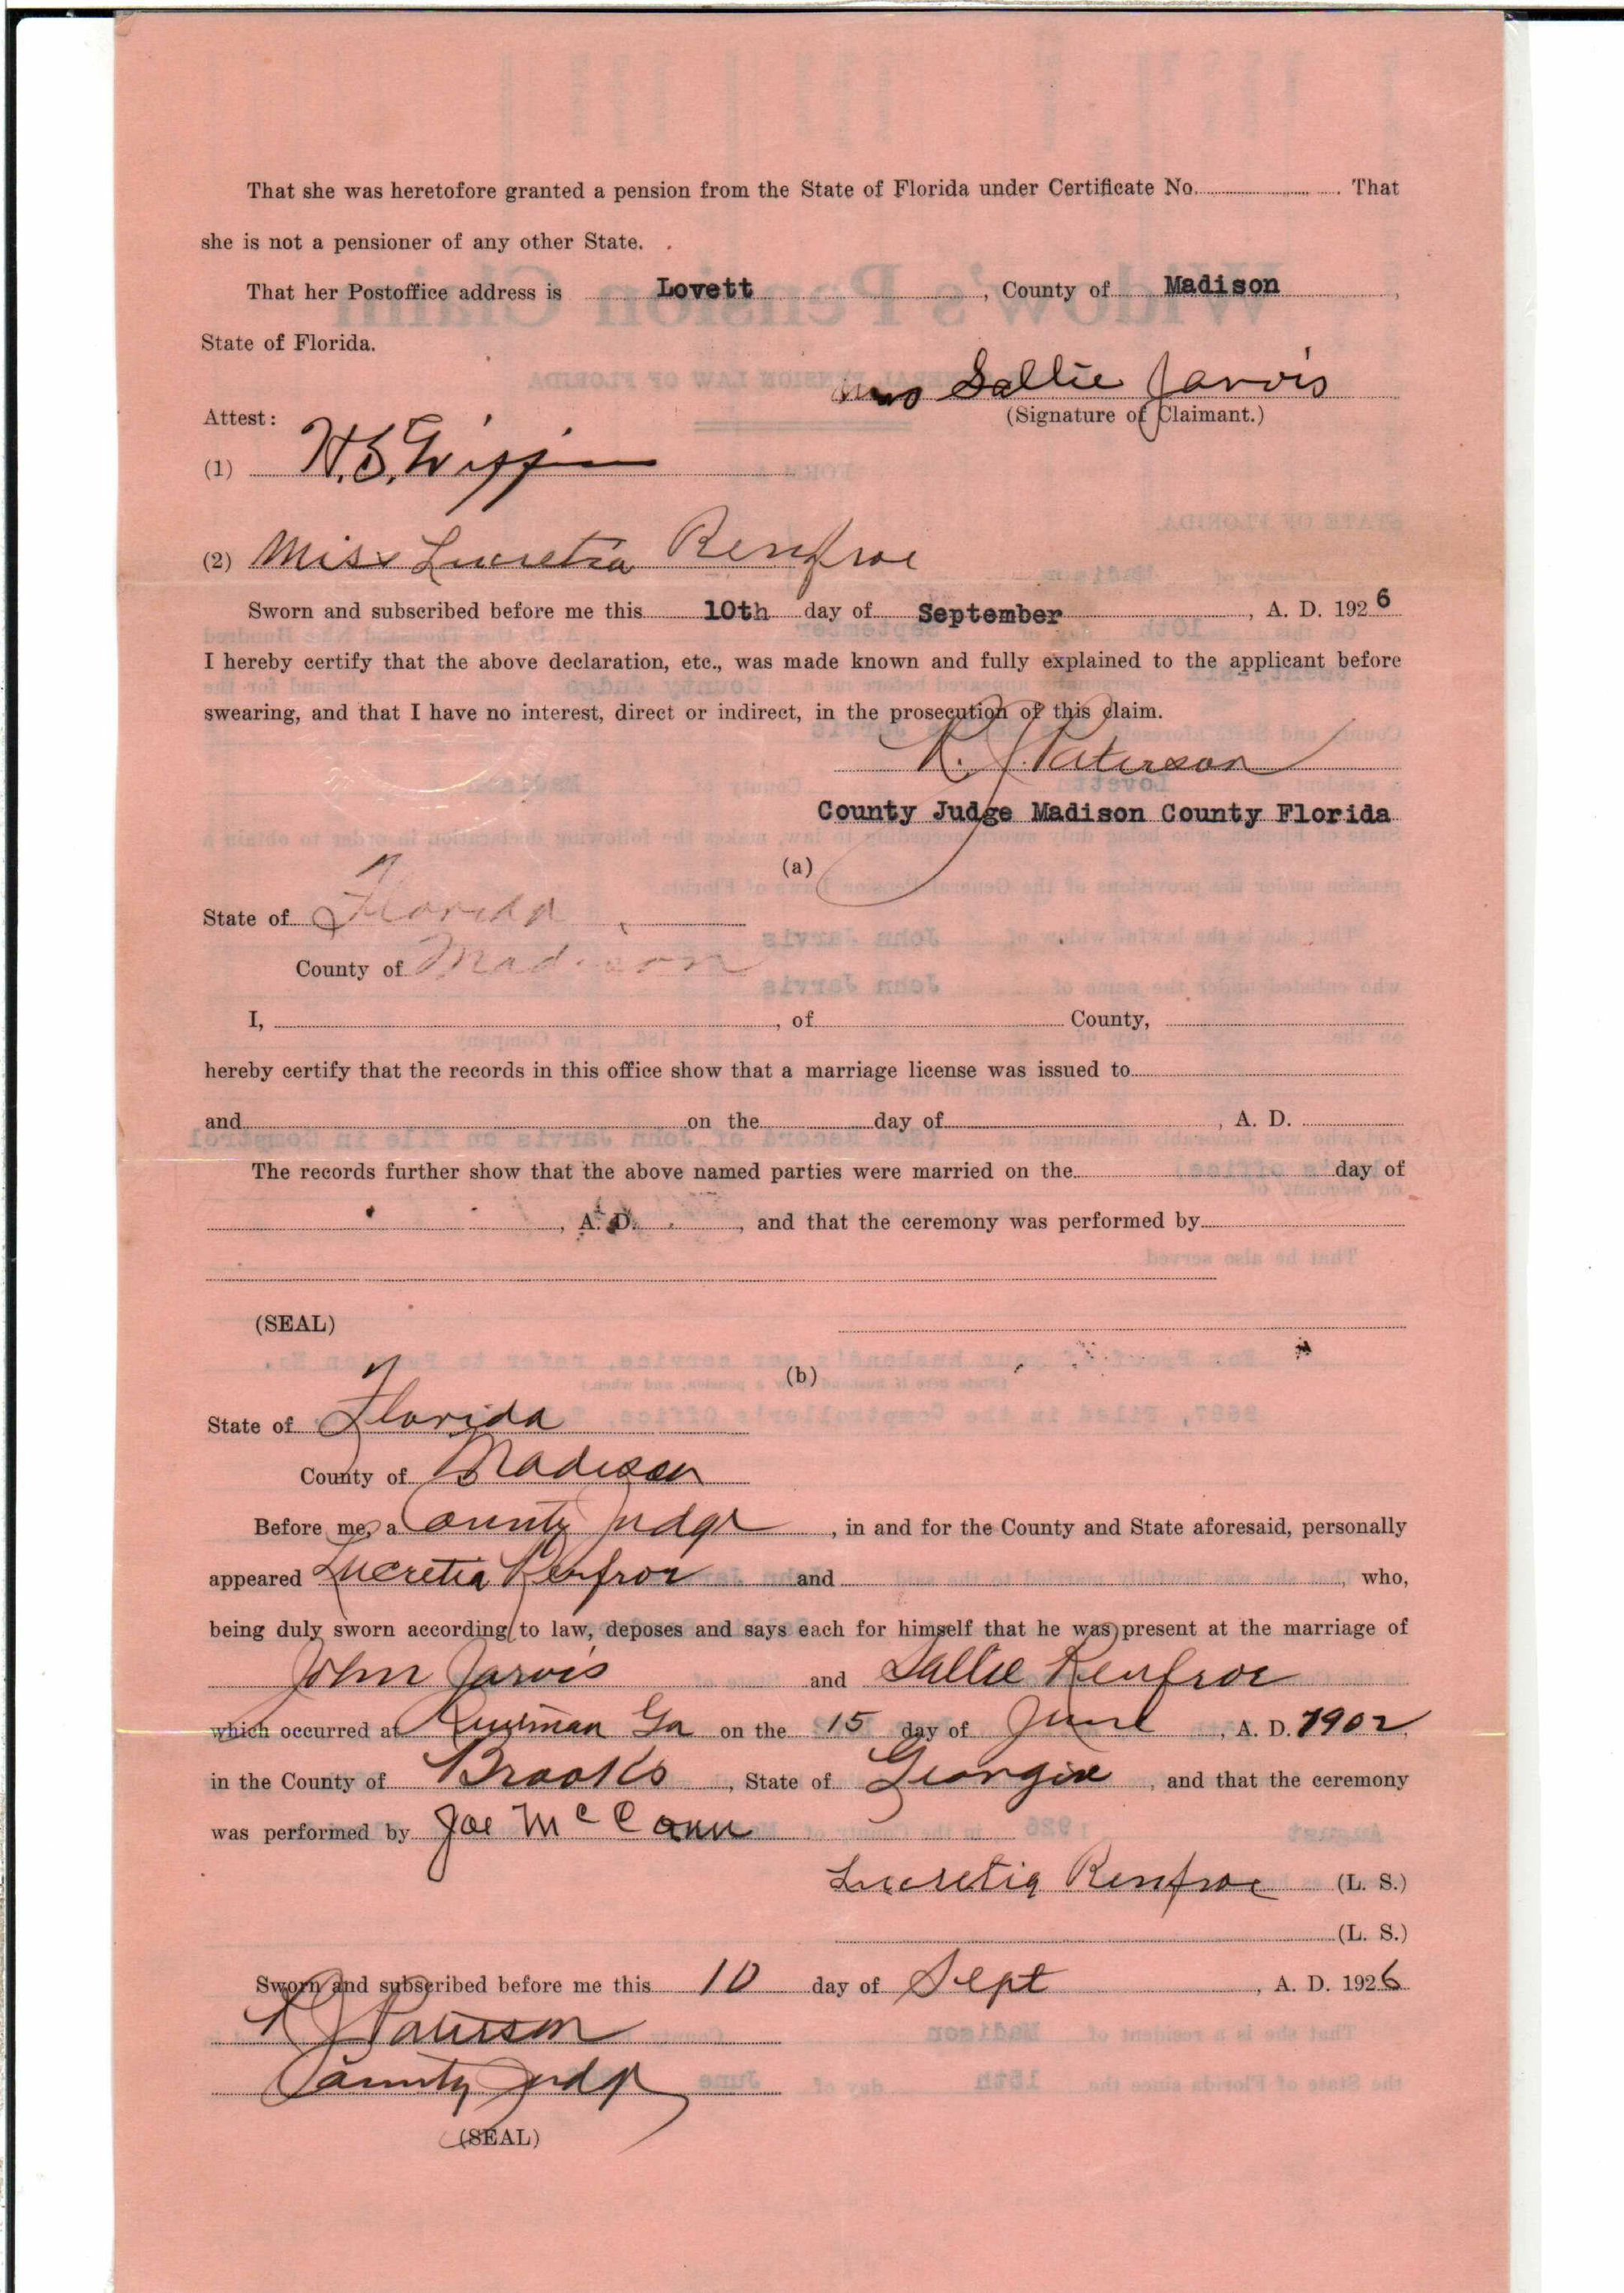 That she was heretofore granted a pension from the State of Florida under Certificate No. That
she is not a pensioner of any other State.
That her Postoffice address is Lovett, County of Madison,
State of Florida.
Mrs Sallie Jarvis
Attest: (Signature of Claimant.)
(1)
(2) Miss Lucretia Renfroe
Sworn and subscribed before me this 10th day of September, A. D. 1926
I hereby certify that the above declaration, etc., was made known and fully explained to the applicant before
swearing, and that I have no interest, direct or indirect, in the prosecution of this claim.
R. J. Paterson
County Judge Madison County Florida
(a)
State of Florida
County of Madison
I, , of County,
hereby certify that the records in this office show that a marriage license was issued to
and on the day of , A. D.
The records further show that the above named parties were married on the day of
, A. D. , and that the ceremony was performed by
(SEAL)
(b)
State of Florida
County of Madison
Before me, a County Judge, in and for the County and State aforesaid, personally
appeared Lucretia Renfroe and , who,
being duly sworn according to law, deposes and says each for himself that he was present at the marriage of
John Jarvis and Sallie Renfroe
which occurred at Ga on the 15 day of June, A. D. 1902,
in the County of Brooks, State of Georgia, and that the ceremony
was performed by Joe McCann
Lucretia Renfroe (L. S.)
(L. S.)
Sworn and subscribed before me this 10 day of Sept, A. D. 1926
R J Paterson
County Judge
(SEAL)